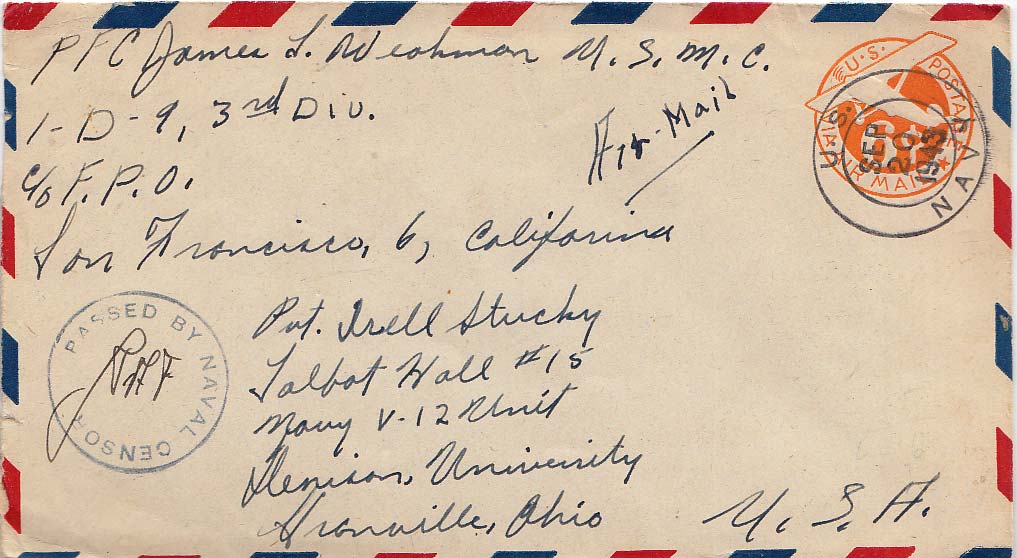 PFC James L. Weohman U.S.M.C.
1-D-9, 3rd Div.
Air-Mail
c/o F.P.O.
San Francisco, 6, California
U.S. POSTAGE
VIA AIR MAIL
U.S. NAVY
SEP
20
1943
PASSED BY NAVAL CENSOR
Pvt. Irell Stucky
Talbot Hall #15
Navy V-12 Unit
Denison, University
Granville, Ohio
U.S.A.